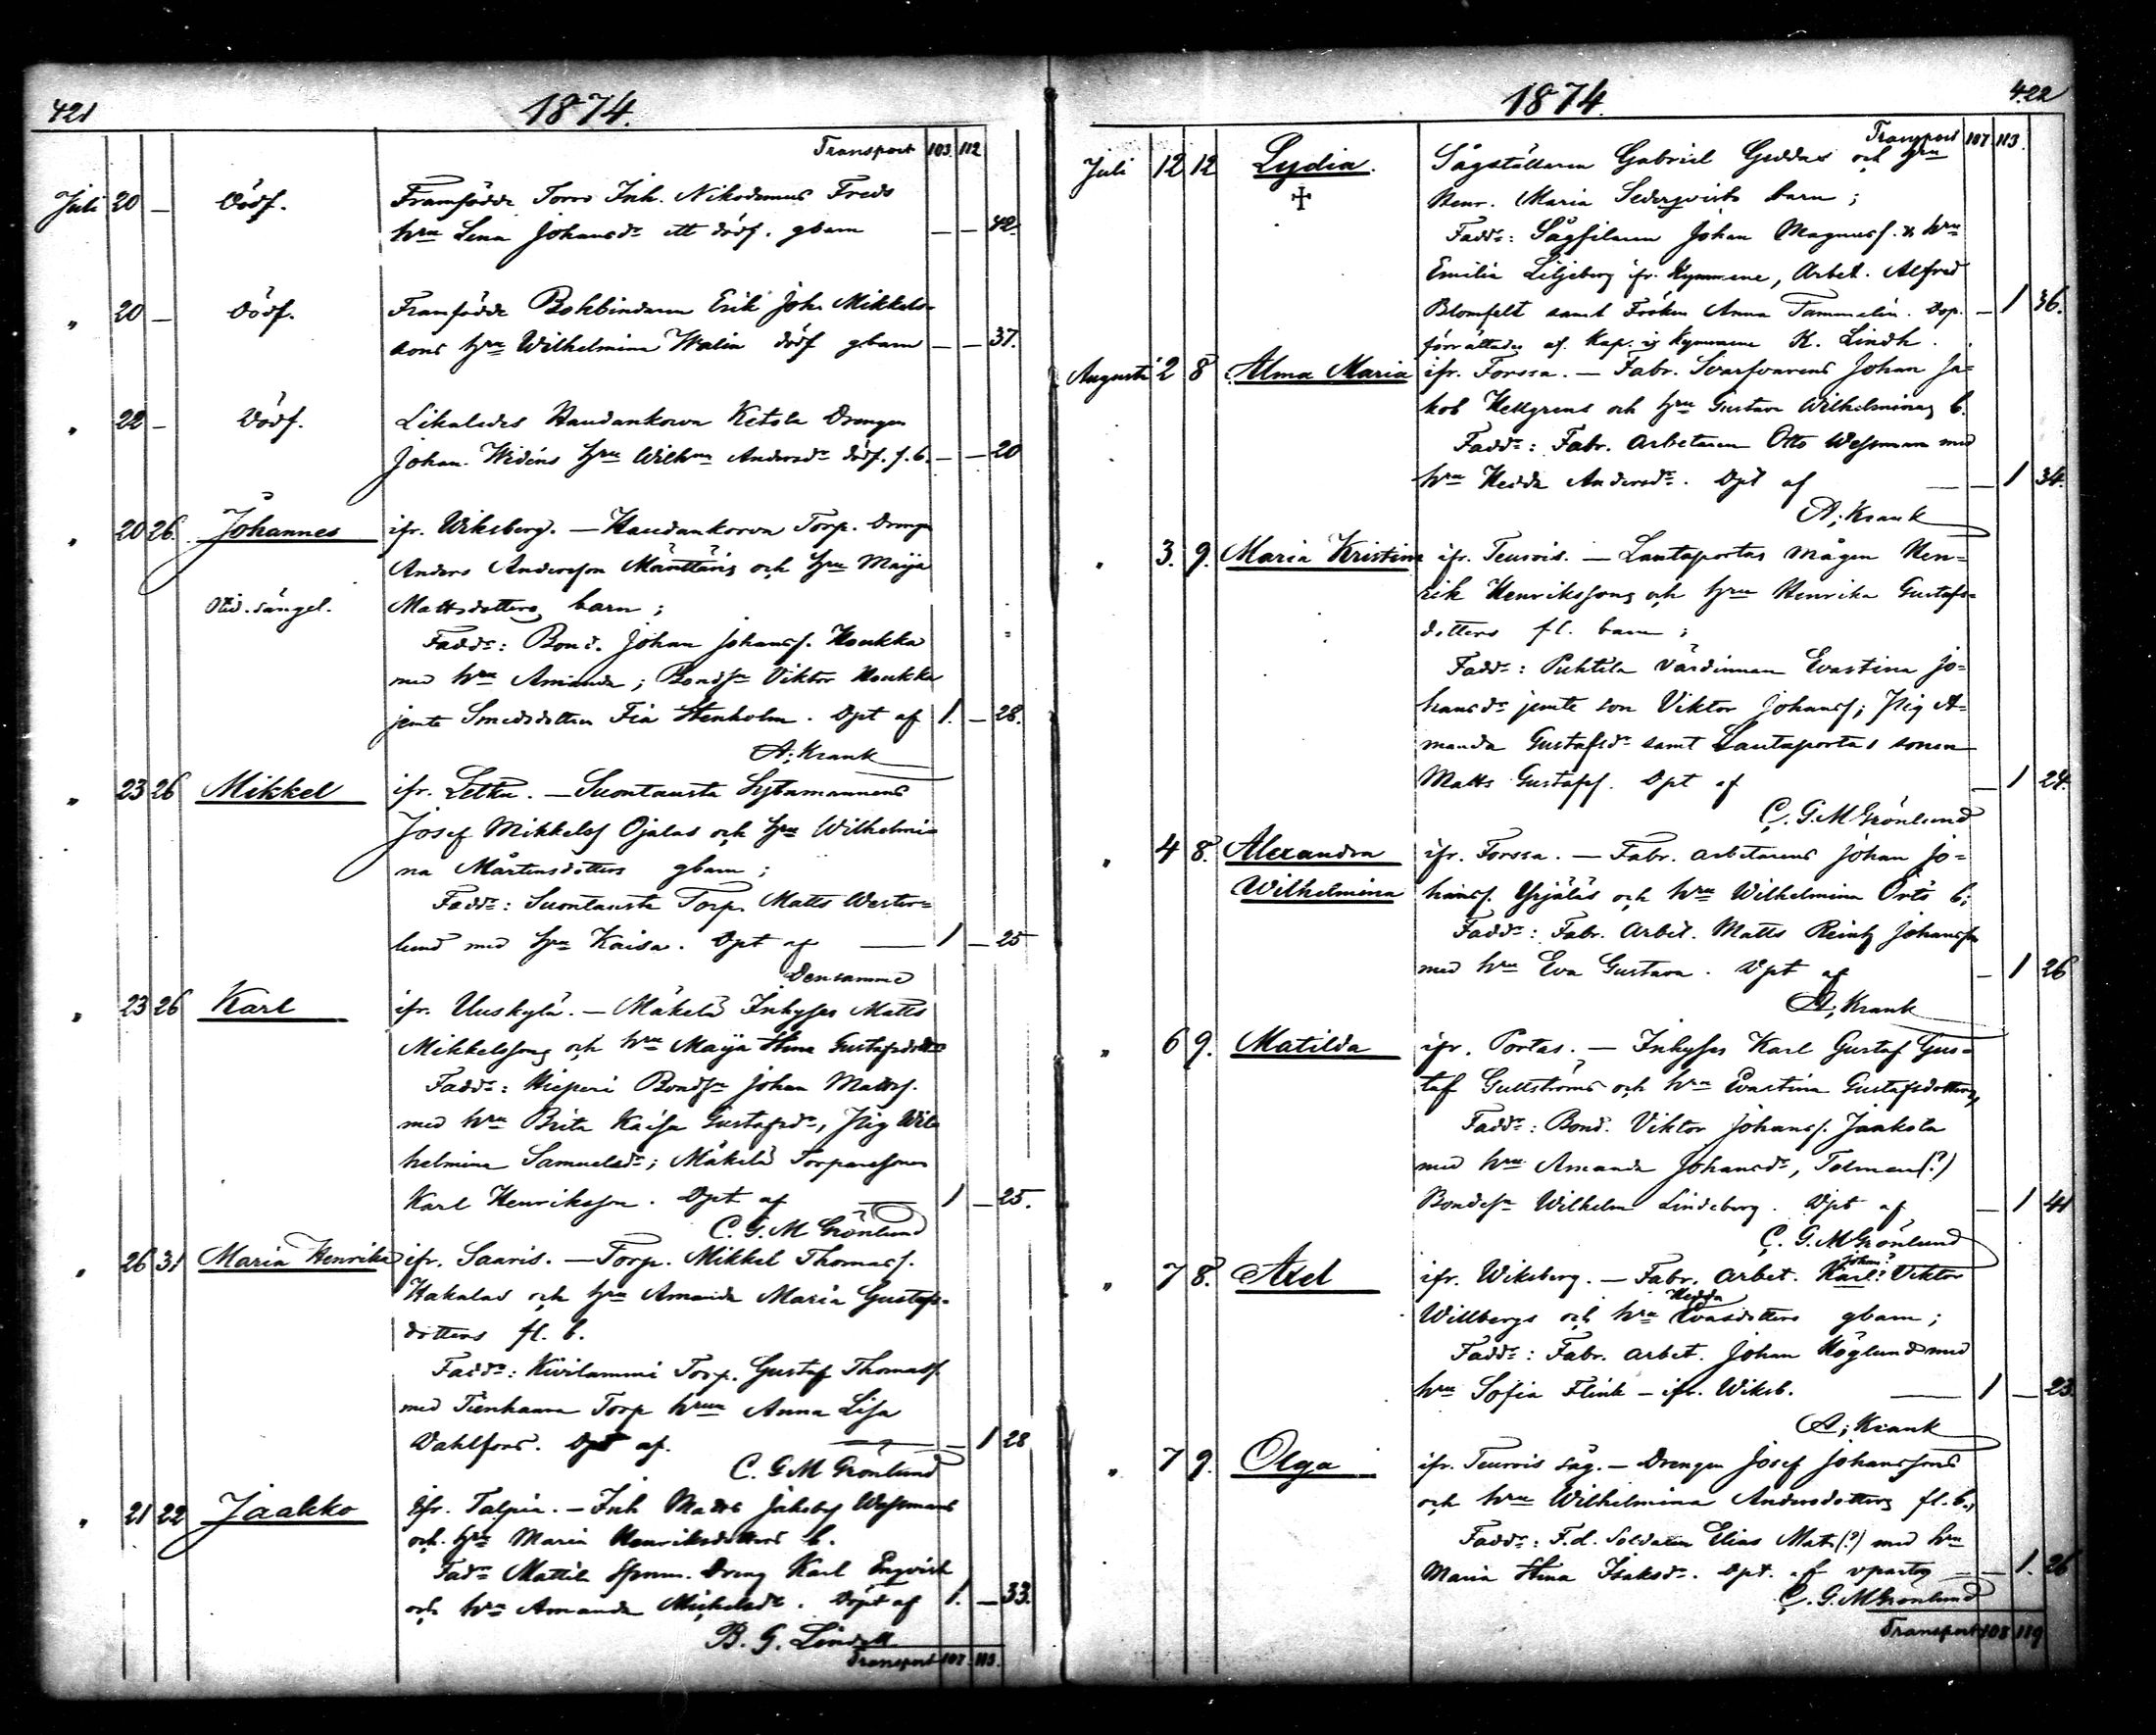 421
1874.
Transport 103. 112
Juli 20 — Dödf. Framfödde Torro Inh. Nikodemus Freds
hru Lena Johansdr ett dödf. gbarn — — 42.
" 20 — Dödf. Framfödde Bokbindaren Erik Joh. Mikkels-
sons hru Wilhelmina Walin dödf gbarn — — 37.
" 22 — Dödf. Likaledes Haudankorva Ketola Drengen
Johan Widéns hru Wilhna Andersdr dödf. f. b. — — 20
" 20 26. Johannes ifr. Wiksberg. — Haudankorva Torp. Drengen
Anders Andersson Mänttäris och hru Maija
Oäd. sängel. Mattsdotters barn;
Faddr: Bond. Johan Johansf. Houkka
med hru Amanda; Bondsn Viktor Houkka
jemte Smedsdottren Fia Stenholm. Dpt af 1. — 28.
A; Krank
" 23 26 Mikkel ifr. Letku. — Suontausta Sytnamannens
Josef Mikkelsf Ojalas och hru Wilhelmi-
na Mårtensdotters gbarn;
Faddr: Suontausta Torp. Matts Wester-
lund med hru Kaisa. Dpt af — 1 — 25
Densamme
" 23 26 Karl ifr. Uuskylä. — Mäkelä Inhyses Matts
Mikkelssons och hru Maija Stina Gustafsdottrs
Faddr: Hieperi Bondsn Johan Mattsf.
med hru Brita Kaisa Gustafsdr, Pig Wil-
helmina Samuelsdr; Mäkelä Torparesonen
Karl Henriksson. Dpt af — 1 — 25.
C. G. M Grönlund
" 26 31 Maria Henrika ifr. Saaris. — Torp. Mikkel Thomasf.
Hakalas och hru Amanda Maria Gustafs-
dotters fl. b.
Faddr: Kivilammi Torp. Gustaf Thomasf.
med Tienhaara Torp hrun Anna Lisa
Dahlfors. Dpt af. — — 1 28
C. G M Grönlund
" 21 22 Jaakko ifr. Talpia. — Inh Matts Jakobsf Wessmans
och hru Maria Henriksdotters b.
Fadr Mattila Dreng Karl Enqvist
och hru Amanda Mickelsdr. Döpt af 1. — 33.
B. G. Lindell
Transport 107. 113.
422
1874.
Transport 107. 113.
Juli 12 12 Lydia. Sågställaren Gabriel Geddas och hru
Henr. Maria Sederqvists barn;
Faddr: Sågfilaren Johan Magnusf. & hru
Emilia Liljeberg ifr. Kymmene, Arbet. Alfred
Blomfelt samt Fröken Anna Tammelin. Dop. — 1 36.
förrättades af Kap. i Kymmene K. Lindh.
Augusti 2 8 Alma Maria ifr. Forssa. — Fabr. Svarfvarens Johan Ja-
kob Hellgrens och hru Gustava Wilhelminas b.
Faddr: Fabr. arbetaren Otto Wessman med
hru Hedda Andersdr. Dpt af — — 1 34.
A; Krank
" 3. 9. Maria Kristina ifr. Teurois. — Lautaportas Mågen Hen-
rik Henrikssons och hru Henrika Gustafs-
dotters fl. barn;
Faddr: Puhtila Värdinnan Evastina Jo-
hansdr jemte son Viktor Johansf; Pig A-
manda Gustafsdr samt Lautaportas sonen
Matts Gustafsf. Dpt af — 1 24.
C. G. M Grönlund
" 4 8. Alexandra ifr. Forssa. — Fabr. arbetarens Johan Jo-
Wilhelmina hansf. Yrjäläs och hru Wilhelmina Örts b;
Faddr: Fabr. Arbet. Matts Reinh Johansson
med hru Eva Gustava. Dpt af — 1 26
A; Krank
" 6 9. Matilda ifr. Portas. — Inhyses Karl Gustaf Gus-
taf Gullströms och hru Evastina Gustafsdotters,
Faddr: Bond. Viktor Johansf. Jaakola
med hru Amanda Johansdr, Tolman(?)
Bondesn Wilhelm Lindeberg. Dpt af — 1 41
C. G. M Grönlund
Johan?
" 7 8. Axel ifr. Wiksberg. — Fabr. Arbet. Karl? Viktor
Hedda
Willbergs och hru Evasdotters gbarn;
Faddr: Fabr. arbet. Johan Höglund med
hru Sofia Flink — ifr. Wiksb. — 1 — 23.
A; Krank
" 7 9. Olga ifr. Teurois såg. — Drengen Josef Johanssons
och hru Wilhelmina Andersdotters fl. b.,
Faddr: F.d. Soldaten Elias Mat(?) med hru
Maria Stina Isaksdr. Dpt. af — — 1. 26
C. G. M Grönlund
Transport 108 119